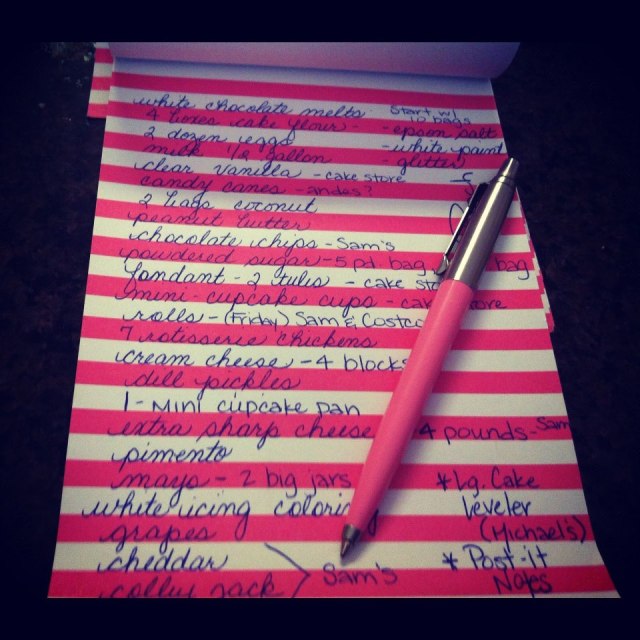 white chocolate melts - Start w/ 10 bags
4 boxes cake flour - - epsom salt
2 dozen eggs - white paint
milk 1/2 gallon - glitter
clear vanilla - cake store
candy canes - andes?
2 bags coconut
peanut butter
chocolate chips - Sam's
powdered sugar - 5 pd. bag bag
fondant - 2 tubs - cake sto
mini cupcake cups - cak ore
rolls - (Friday) Sam & Costco
7 rotisserie chickens
cream cheese - 4 blocks
dill pickles
1 - Mini cupcake pan
extra sharp cheese 4 pounds - Sam
pimento
mayo - 2 big jars
* Lg. Cake
white icing coloring
leveler
grapes
(Michael's)
cheddar
* Post-it
Sam's
Notes
jack